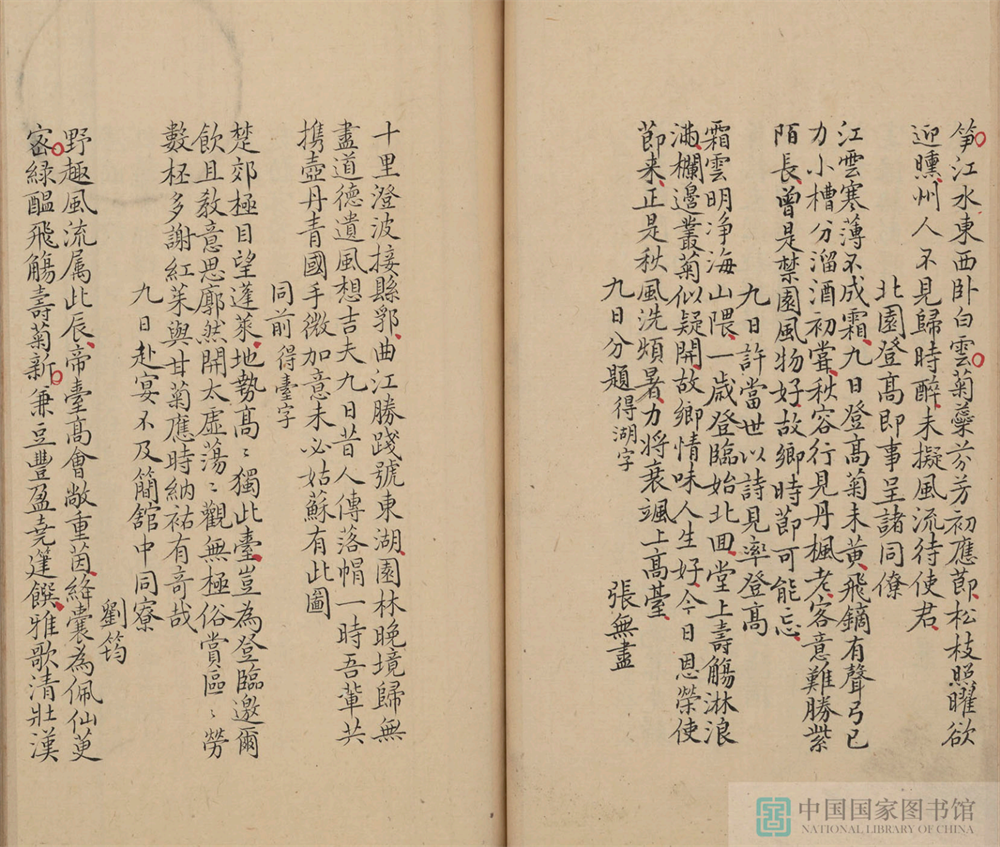 笋江水東西卧白雲菊蘂芬芳初應節松枝照曜欲
迎曛州人不見歸時醉未擬風流待使君
北園登高即事呈諸同僚
江雲寒薄不成霜九日登高菊未黄飛鏑有聲弓已
力小槽分溜酒初甞秋容行見丹楓老客意難勝紫
陌長曾是禁園風物好故鄉時節可能忘
九日許當世以詩見率登高
霜雲明浄海山隈一歳登臨始北回堂上壽觴淋浪
滿欄邊叢菊似疑開故鄉情味人生好今日恩榮使
節来正是秋風洗煩暑力將衰颯上高臺
九日分題得湖字
張無盡
十里澄波接縣鄂曲江勝踐號東湖園林晚境歸無
盡道德遺風想吉夫九日昔人傳落帽一時吾輩共
携壺丹青國手微加意未必姑蘇有此圖
同前得臺字
楚郊極目望蓬萊地勢高〻獨此臺豈為登臨邀爾
飲且敎意思廓然開太虛蕩〻觀無極俗賞區〻勞
數柸多謝紅茱與甘菊應時納祜有竒哉
九日赴宴不及簡舘中同寮
劉筠
野趣風流属此辰帝臺高會敞重茵絳囊為佩仙萸
宻緑醖飛觴壽菊新兼豆豐盈堯篷饌雅歌清壯漢
中国国家图书馆
NATIONAL LIBRARY OF CHINA